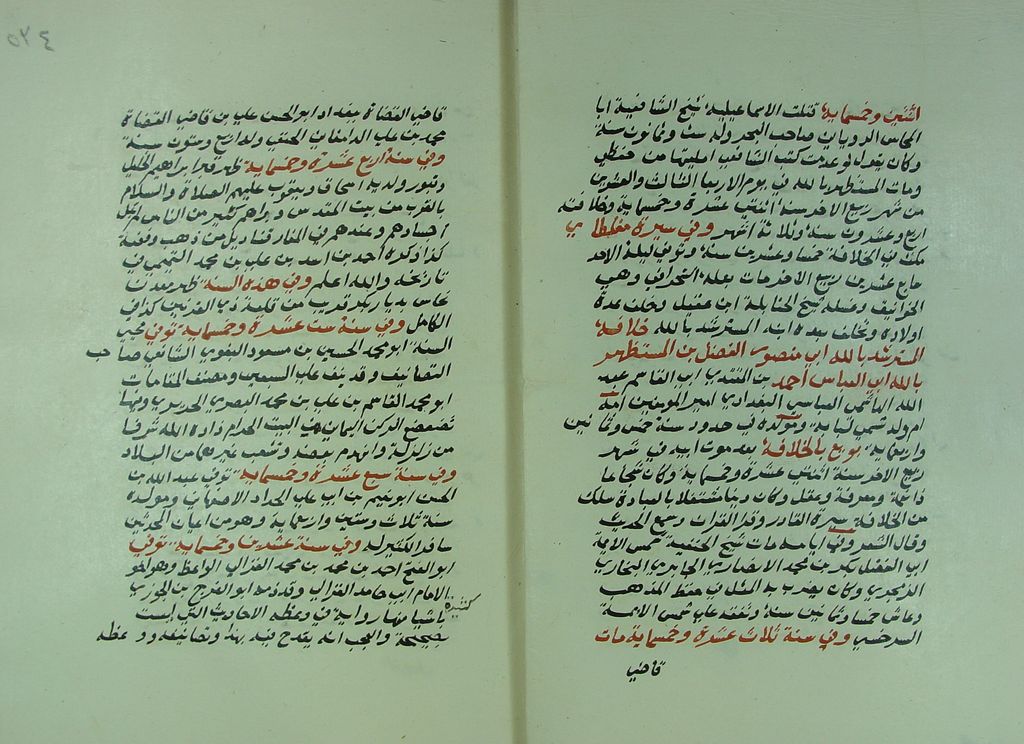 اثنتين وخمسماية قتلت الاسماعيلية شيخ الشافعية ابا
المحاسن الروياني صاحب البحر وله ست وثمانون سنة
وكان يقول لو عدمت كتب الشافعي امليتها من حفظي
ومات المستظهر بالله في يوم الاربعا الثالث والعشرين
من شهر ربيع الاخر سنة اثنتي عشرة وخمسماية وخلافته
اربع وعشرون سنة وثلاثة اشهر وفي سيرة مغلطاي
مكث في الخلافة خمسا وعشرين سنة وتوفي ليلة الاحد
سابع عشرين ربيع الاخر مات بعلة وهي
الخوانيق وغسله شيخ الحنابلة ابن عقيل وخلف عدة
اولاده وتخلف بعده ابنه المسترشد بالله خلافة
المسترشد بالله ابي منصور الفضل بن المستظهر
بالله ابي العباس احمد بن المقتدي ابي القاسم عبد
الله الهاشمي العباسي البغدادي امير المومنين امه
ام ولد تسمى لبابة ومولده في حدود سنة خمس وثمانين
واربعماية بويع بالخلافة بعد موت ابيه في شهر
ربيع الاخر سنة اثنتي عشرة وخمسماية وكان شجاعا
ومعرفة وعقل وكان دينا مشتغلا بالعبادة سلك
من الخلافة سيرة القادر وقرا القران وسمع الحديث
وقال الشعر وفي ايامه مات شيخ الحنفية شمس الايمة
ابي الفضل بكر بن محمد الانصاري الجابري البخاري
الزرنجري وكان يضرب به المثل في حفظ المذهب
وعاش خمسا وثمانين سنة وتفقه على شمس الايمة
السرخسي وفي سنة ثلاث عشرة وخمسماية مات
قاضي
٥٢٤
قاضي القضاة ببغداد ابو الحسن علي بن قاضي القضاة
محمد بن علي الدامغاني الحنفي وله اربع وستون سنة
وفي سنة اربع عشرة وخمسماية ظهر قبر ابراهيم الخليل
وقبور ولديه اسحاق ويعقوب عليهم الصلاة والسلام
بالقرب من بيت المقدس وراهم كثير من الناس لم تبل
اجسادهم وعندهم في المغار قناديل من ذهب وفضة
كذا ذكره احمد بن اسد بن علي بن محمد التميمي في
تاريخه والله اعلم وفي هذه السنة ظهر معدن
نحاس بديار بكر قريب من قلعة ذي القرنين كذا في
الكامل وفي سنة ست عشرة وخمسماية توفي محيي
السنة ابو محمد الحسين بن مسعود البغوي الشافعي صاحب
التصانيف وقد نيف على السبعين ومصنف المقامات
ابو محمد القاسم بن علي بن محمد البصري الحريري وفيها
تضعضع الركن اليماني من البيت الحرام زاده الله شرفا
من زلزلة وانهدم بعضه وتشعب غيرها من البلاد
وفي سنة سبع عشرة وخمسماية توفي عبد الله بن
الحسن ابو نعيم بن ابي علي الحداد الاصبهاني ومولده
سنة ثلاث وستين واربعماية وهو من اعيان المحدثين
سافر الكثير له وفي سنة عشرين وخمسماية توفي
ابو الفتح احمد بن محمد بن محمد الغزالي الواعظ وهو اخو
الامام ابي حامد الغزالي وقد ذمه ابو الفرج بن الجوزي
باشيا كثيرة منها روايته في وعظه الاحاديث التي ليست
بصحيحة والعجب انه يقدح فيه بهذا وتصانيفه ووعظه